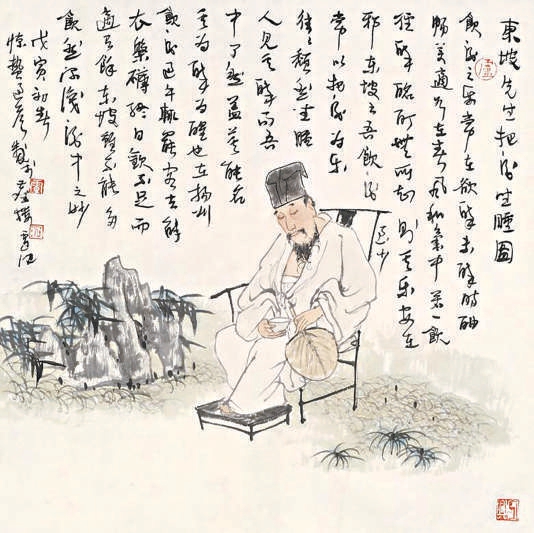 東坡先生把酒坐睡圖
飲酒之樂常在欲醉未醉時酣
暢美適如在春風和氣中若一飲
徑醉酩酊無所知則其樂安在
耶東坡云吾飲酒至少
常以把酒為樂
往往頹然坐睡
人見其醉而吾
中了然蓋莫能名
其為醉為醒也在揚州
飲酒過午輒罷客去解
衣槃礴終日歡不足而
適有餘東坡雖不能多
飲然深識酒中之妙
戊寅初春